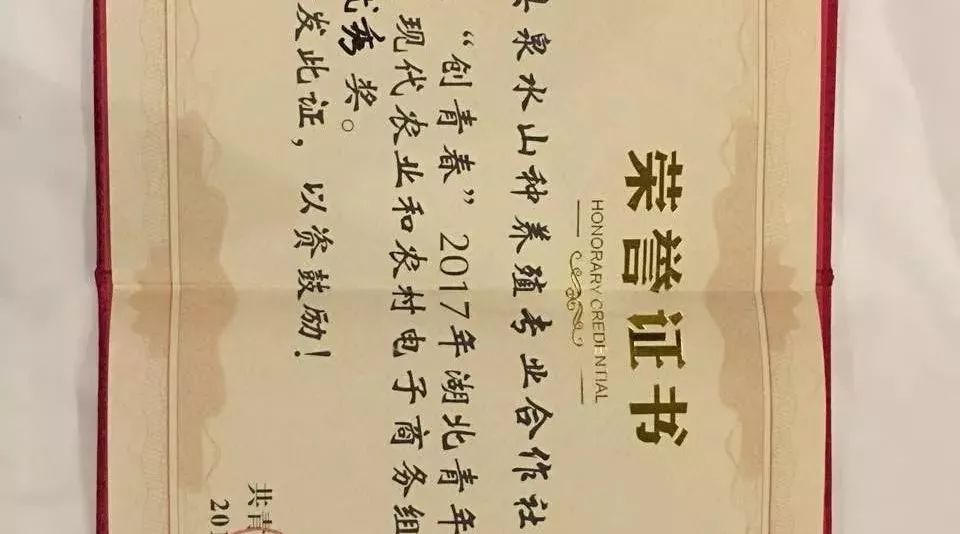 荣誉证书
HONORARY CREDENTIAL
泉水山种养殖专业合作社
“创青春”2017年湖北青年
现代农业和农村电子商务组
优秀奖。
发此证，以资鼓励！
共青
20